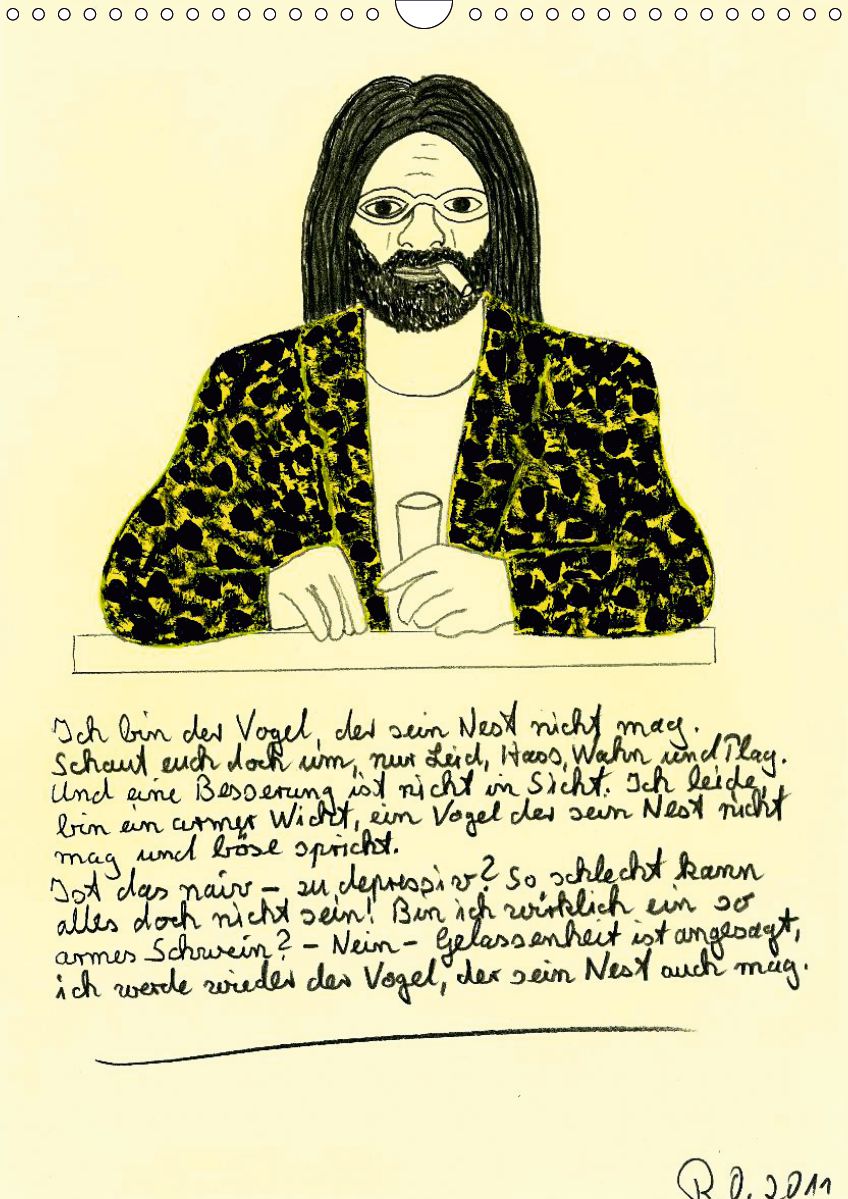 Ich bin der Vogel, der sein Nest nicht mag.
Schaut euch doch um, nur Leid, Hass, Wahn und Plag.
Und eine Besserung ist nicht in Sicht. Ich leide,
bin ein armer Wicht, ein Vogel der sein Nest nicht
mag und böse spricht.
Ist das naiv – zu depressiv? So schlecht kann
alles doch nicht sein! Bin ich wirklich ein so
armes Schwein? – Nein – Gelassenheit ist angesagt,
ich werde wieder der Vogel, der sein Nest auch mag.
R.O. 2011